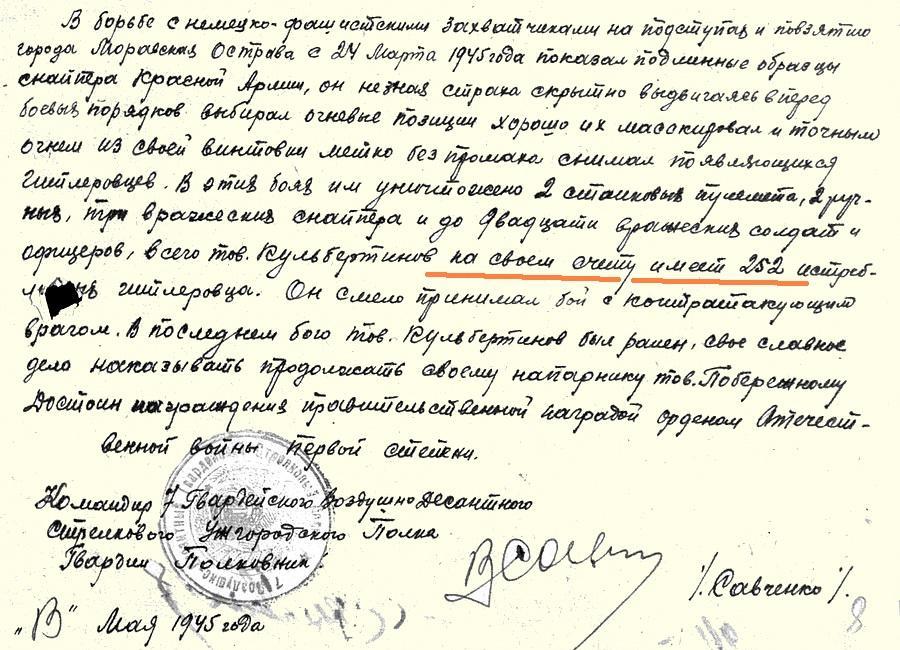 В борьбе с немецко-фашистскими захватчиками на подступах и по взятию
города Моравская Острава с 24 марта 1945 года показал подлинные образцы
снайпера Красной Армии, он не зная страха скрытно выдвигаясь вперед
боевых порядков выбирал огневые позиции хорошо их маскировал и точным
огнем из своей винтовки метко без промаха снимал появляющихся
гитлеровцев. В этих боях им уничтожено 2 станковых пулемета, 2 руч-
ных, три вражеских снайпера и до двадцати вражеских солдат и
офицеров, всего тов. Кульбертинов на своем счету имеет 252 истреб-
гитлеровца. Он смело принимал бой с контратакующим
врагом. В последнем бою тов. Кульбертинов был ранен, свое славное
дело наказывать продолжать своему напарнику тов. Побережному
Достоин награждения правительственной наградой орденом Отечест-
венной войны первой степени.
Командир 7 Гвардейского Воздушно Десантного
Стрелкового Ужгородского Полка
Гвардии Полковник:
/. Савченко /.
Мая 1945 года